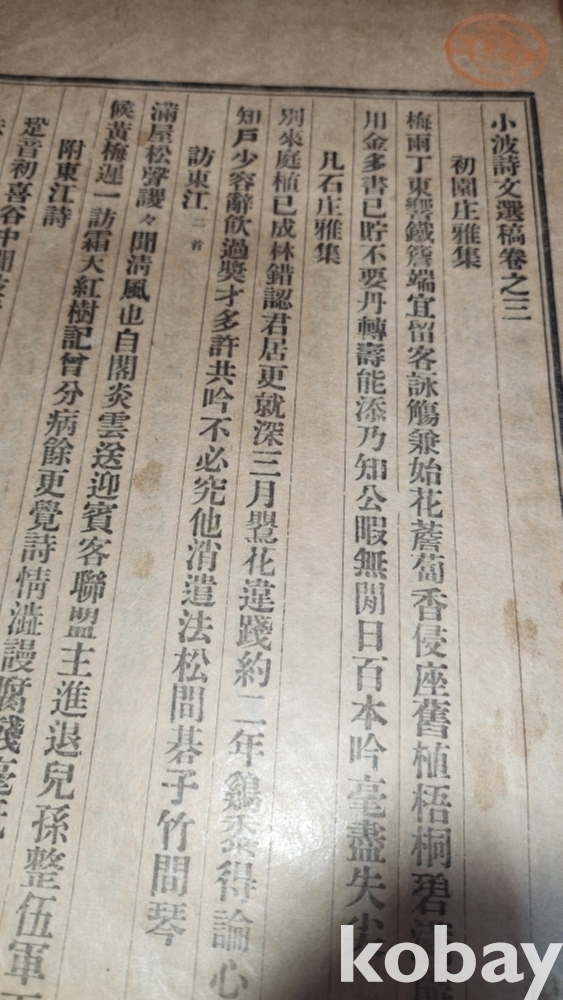 小波詩文選稿卷之三
初園庄雅集
梅雨丁東響鐵簷端宜留客詠觴兼始花薝蔔香侵座舊植梧桐碧
用金多書已貯不要丹轉壽能添乃知公暇無閒日百本吟毫盡失尖
凡石庄雅集
別來庭植已成林錯認君居更就深三月鸎花違踐約二年鷄黍得論心
知戶少容辭飲過獎才多許共吟不必究他消遣法松間碁子竹間琴
訪東江 二首
滿屋松聲謖々聞清風也自閣炎雲送迎賓客聯盟主進退兒孫整伍軍
候黃梅遲一訪霜天紅樹記曾分病餘更覺詩情澁謾
附東江詩
跫音初喜谷中聞
kobay